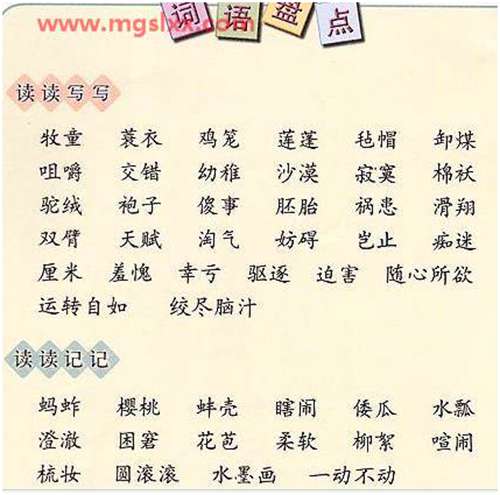 www.mgslxx.com
词语盘点
读读写写
牧童 蓑衣 鸡笼 莲蓬 毡帽 卸煤
咀嚼 交错 幼稚 沙漠 寂寞 棉袄
驼绒 袍子 傻事 胚胎 祸患 滑翔
双臂 天赋 淘气 妨碍 岂止 痴迷
厘米 羞愧 幸亏 驱逐 迫害 随心所欲
运转自如 绞尽脑汁
读读记记
蚂蚱 樱桃 蚌壳 瞎闹 倭瓜 水瓢
澄澈 困窘 花苞 柔软 柳絮 喧闹
梳妆 圆滚滚 水墨画 一动不动